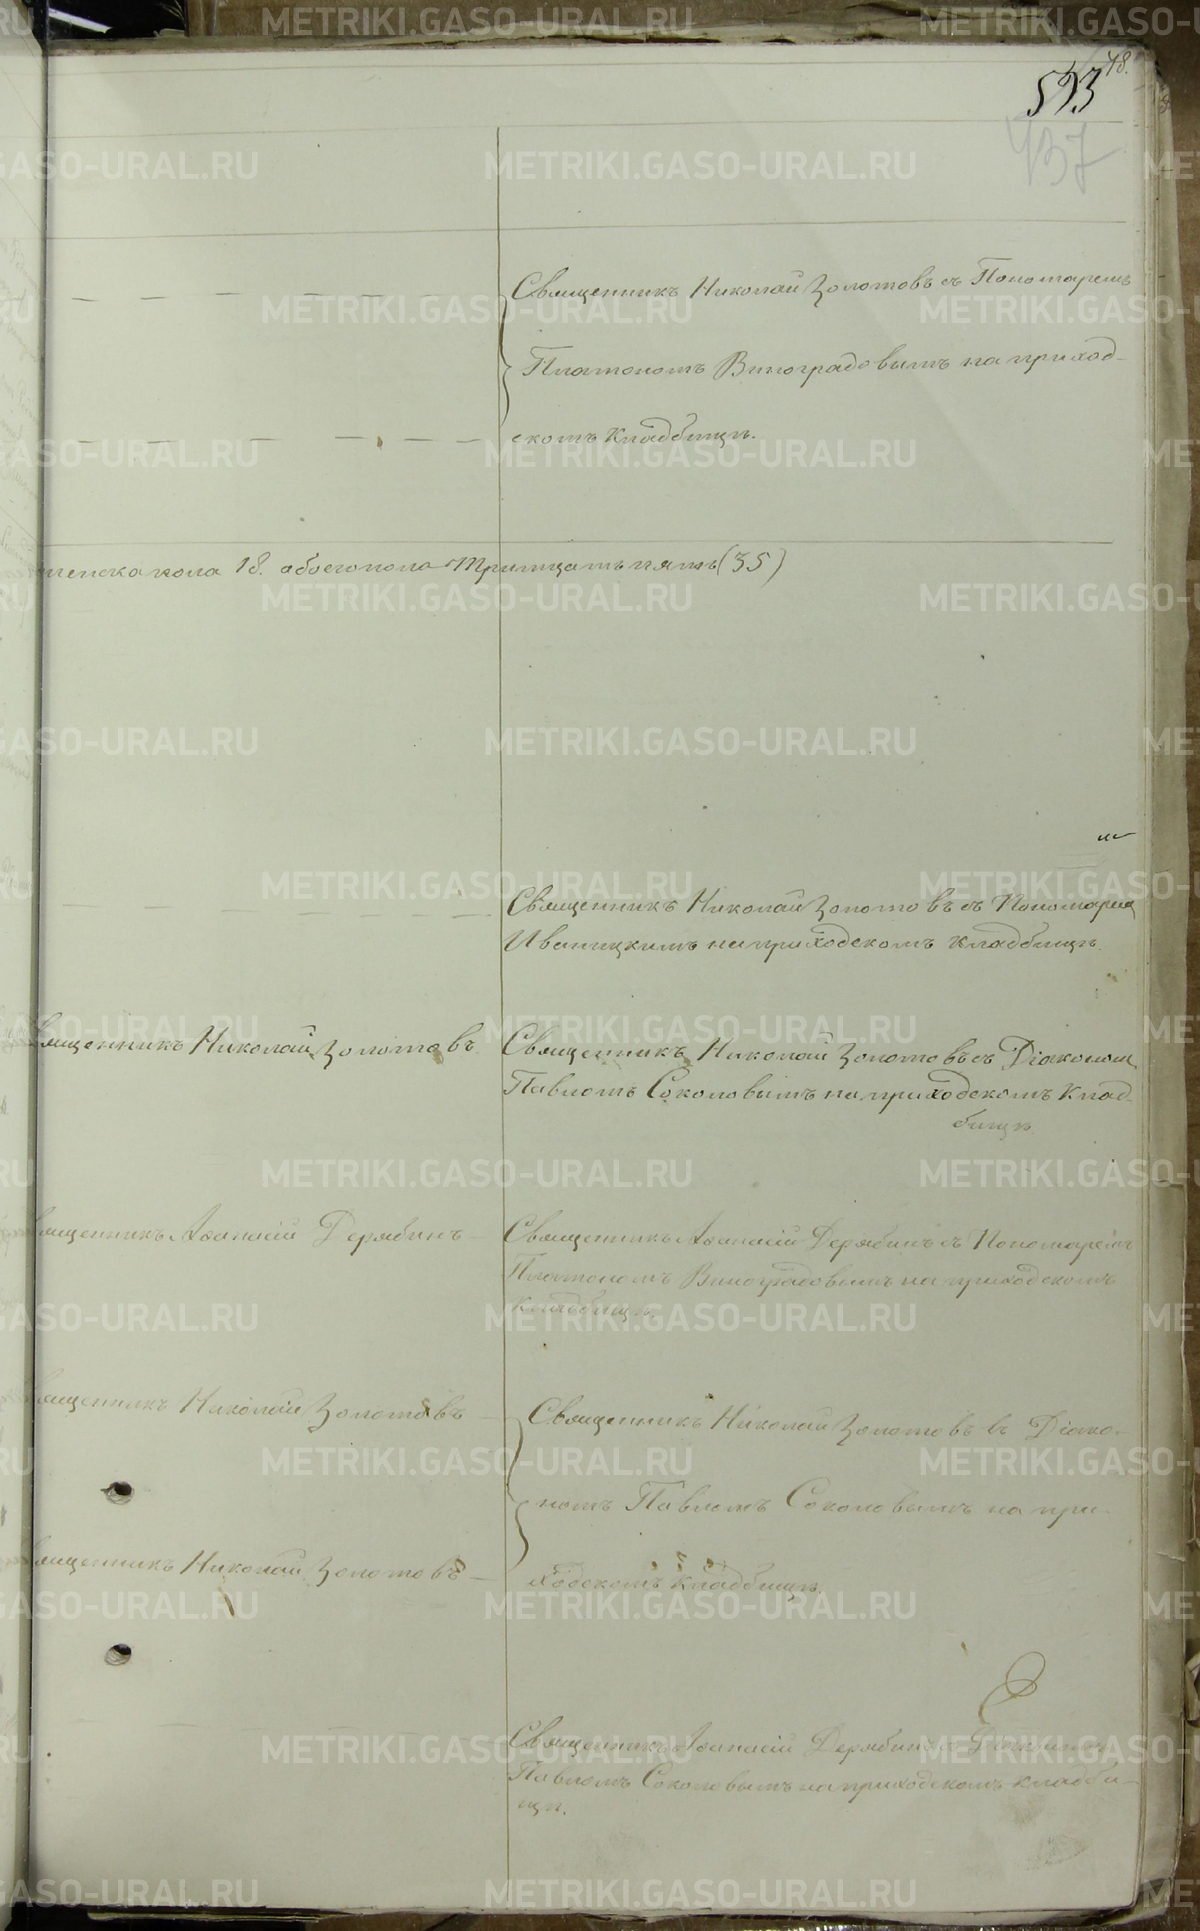 48.
593
437
Священникъ Николай Золотовъ съ Пономаремъ
Платономъ Виноградовымъ на приход-
скомъ кладбищѣ.
женска пола 18. обоего пола тритцать пять (35)
Священникъ Николай Золотовъ съ Пономаремъ
Иваницкимъ на приходскомъ кладбищѣ.
Священникъ Николай Золотовъ.
Священникъ Николай Золотовъ съ Діакономъ
Павломъ Соколовымъ на приходскомъ клад-
бищѣ.
Священникъ Аѳанасій Дерябинъ —
Священникъ Аѳанасій Дерябинъ съ Пономаремъ
Платономъ Виноградовымъ на приходскомъ
кладбищѣ.
Священникъ Николай Золотовъ —
Священникъ Николай Золотовъ съ Діако-
номъ Павломъ Соколовымъ на при-
ходскомъ кладбищѣ.
Священникъ Николай Золотовъ —
Священникъ Аѳанасій Дерябинъ съ Діакономъ
Павломъ Соколовымъ на приходскомъ кладби-
щѣ.
METRIKI.GASO-URAL.RU